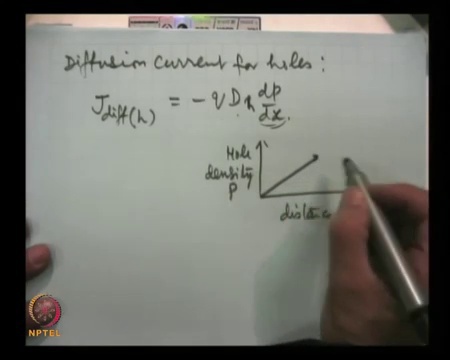 Diffusion current for holes :
J diff(h) = - q D h dp/dx
Hole
density
p
distance
NPTEL